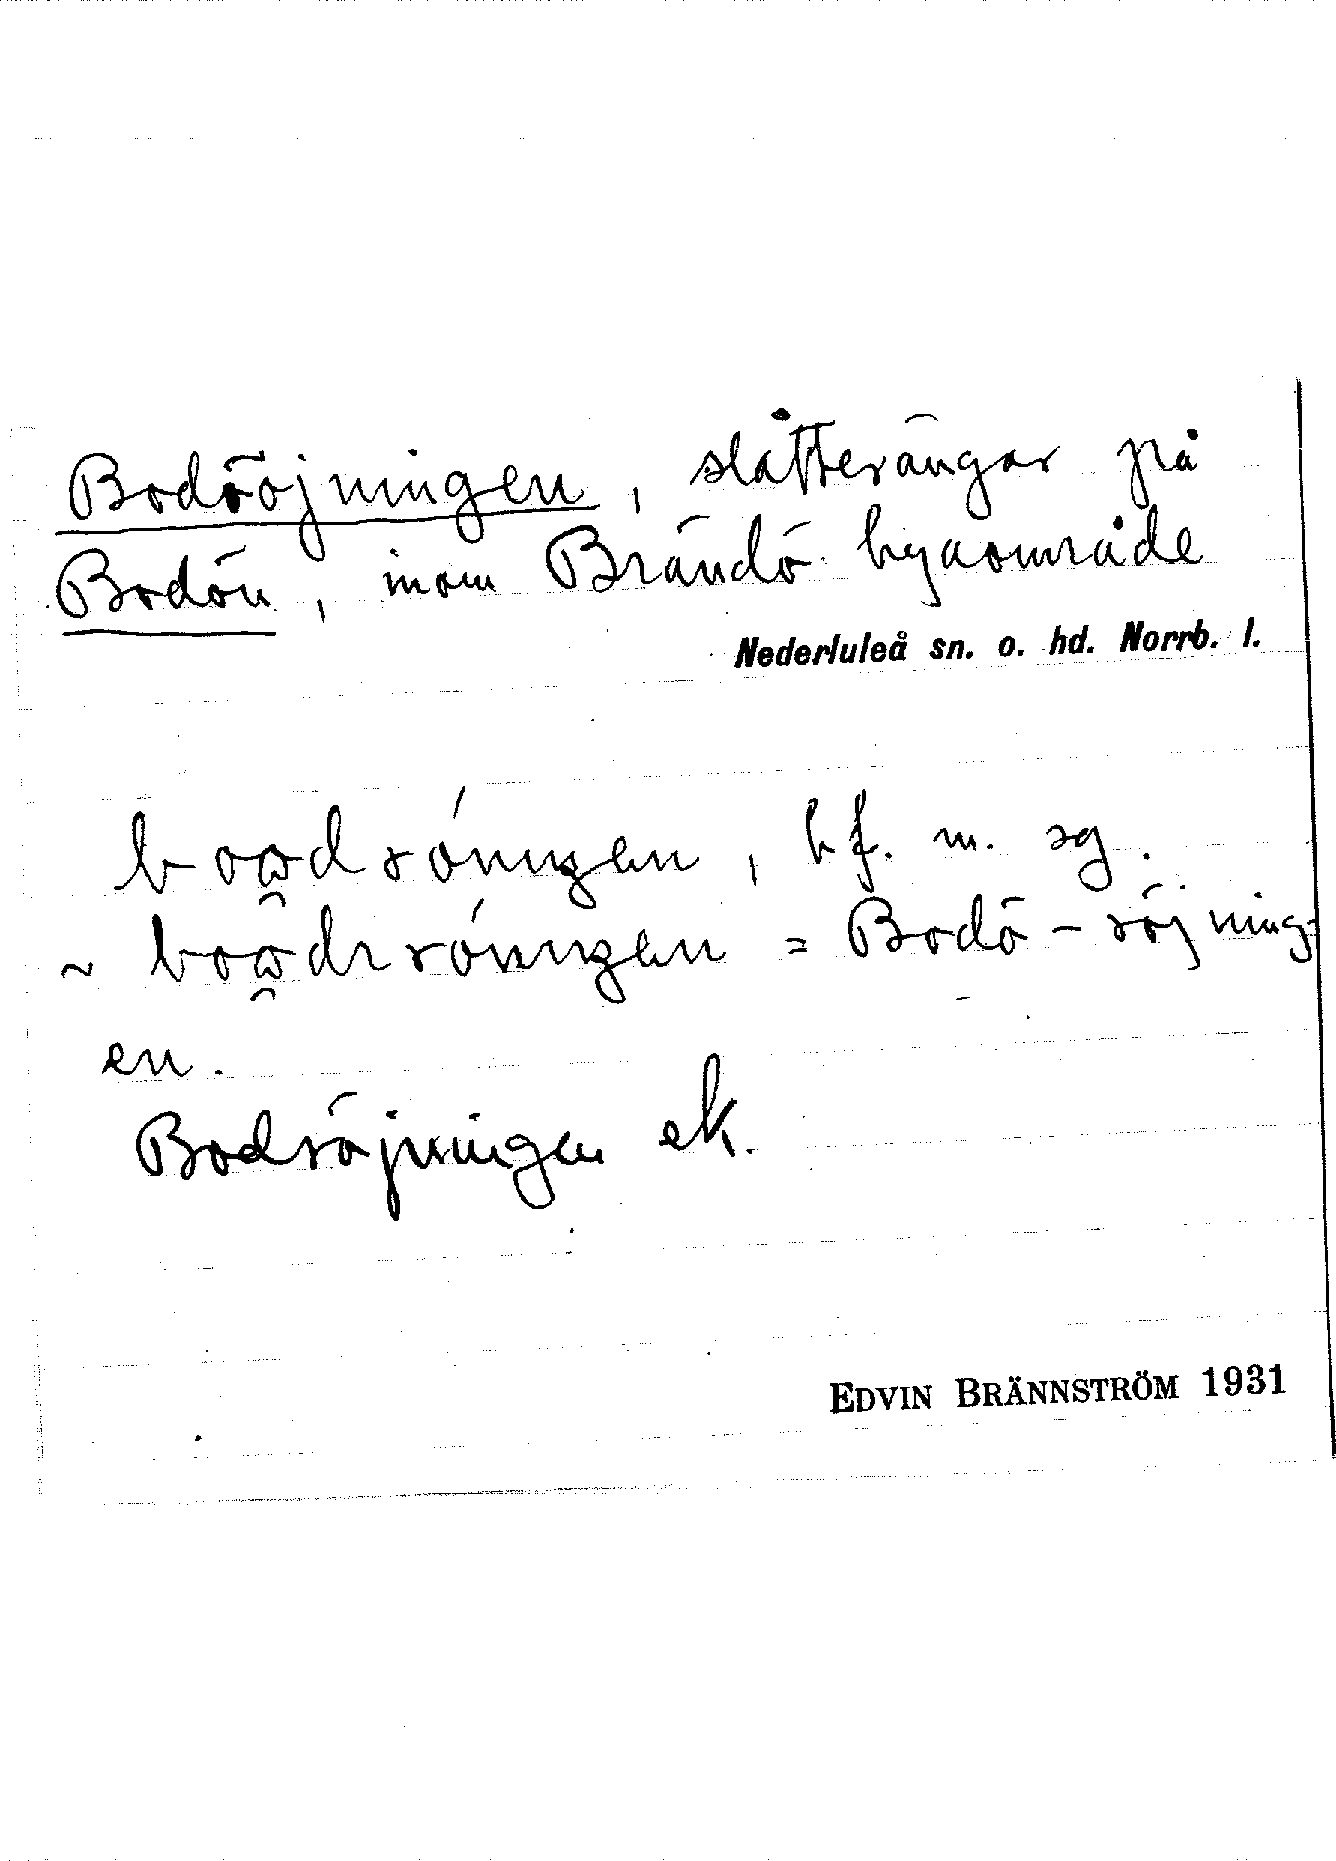 Bodröjningen, slåtterängar på
Bodön, inom Brändö byaområde
Nederluleå sn. o. hd. Norrb. l.
, bf. m. sg.
~ = Bodö-röjning-
en.
Bodröjningen ek.
EDVIN BRÄNNSTRÖM 1931